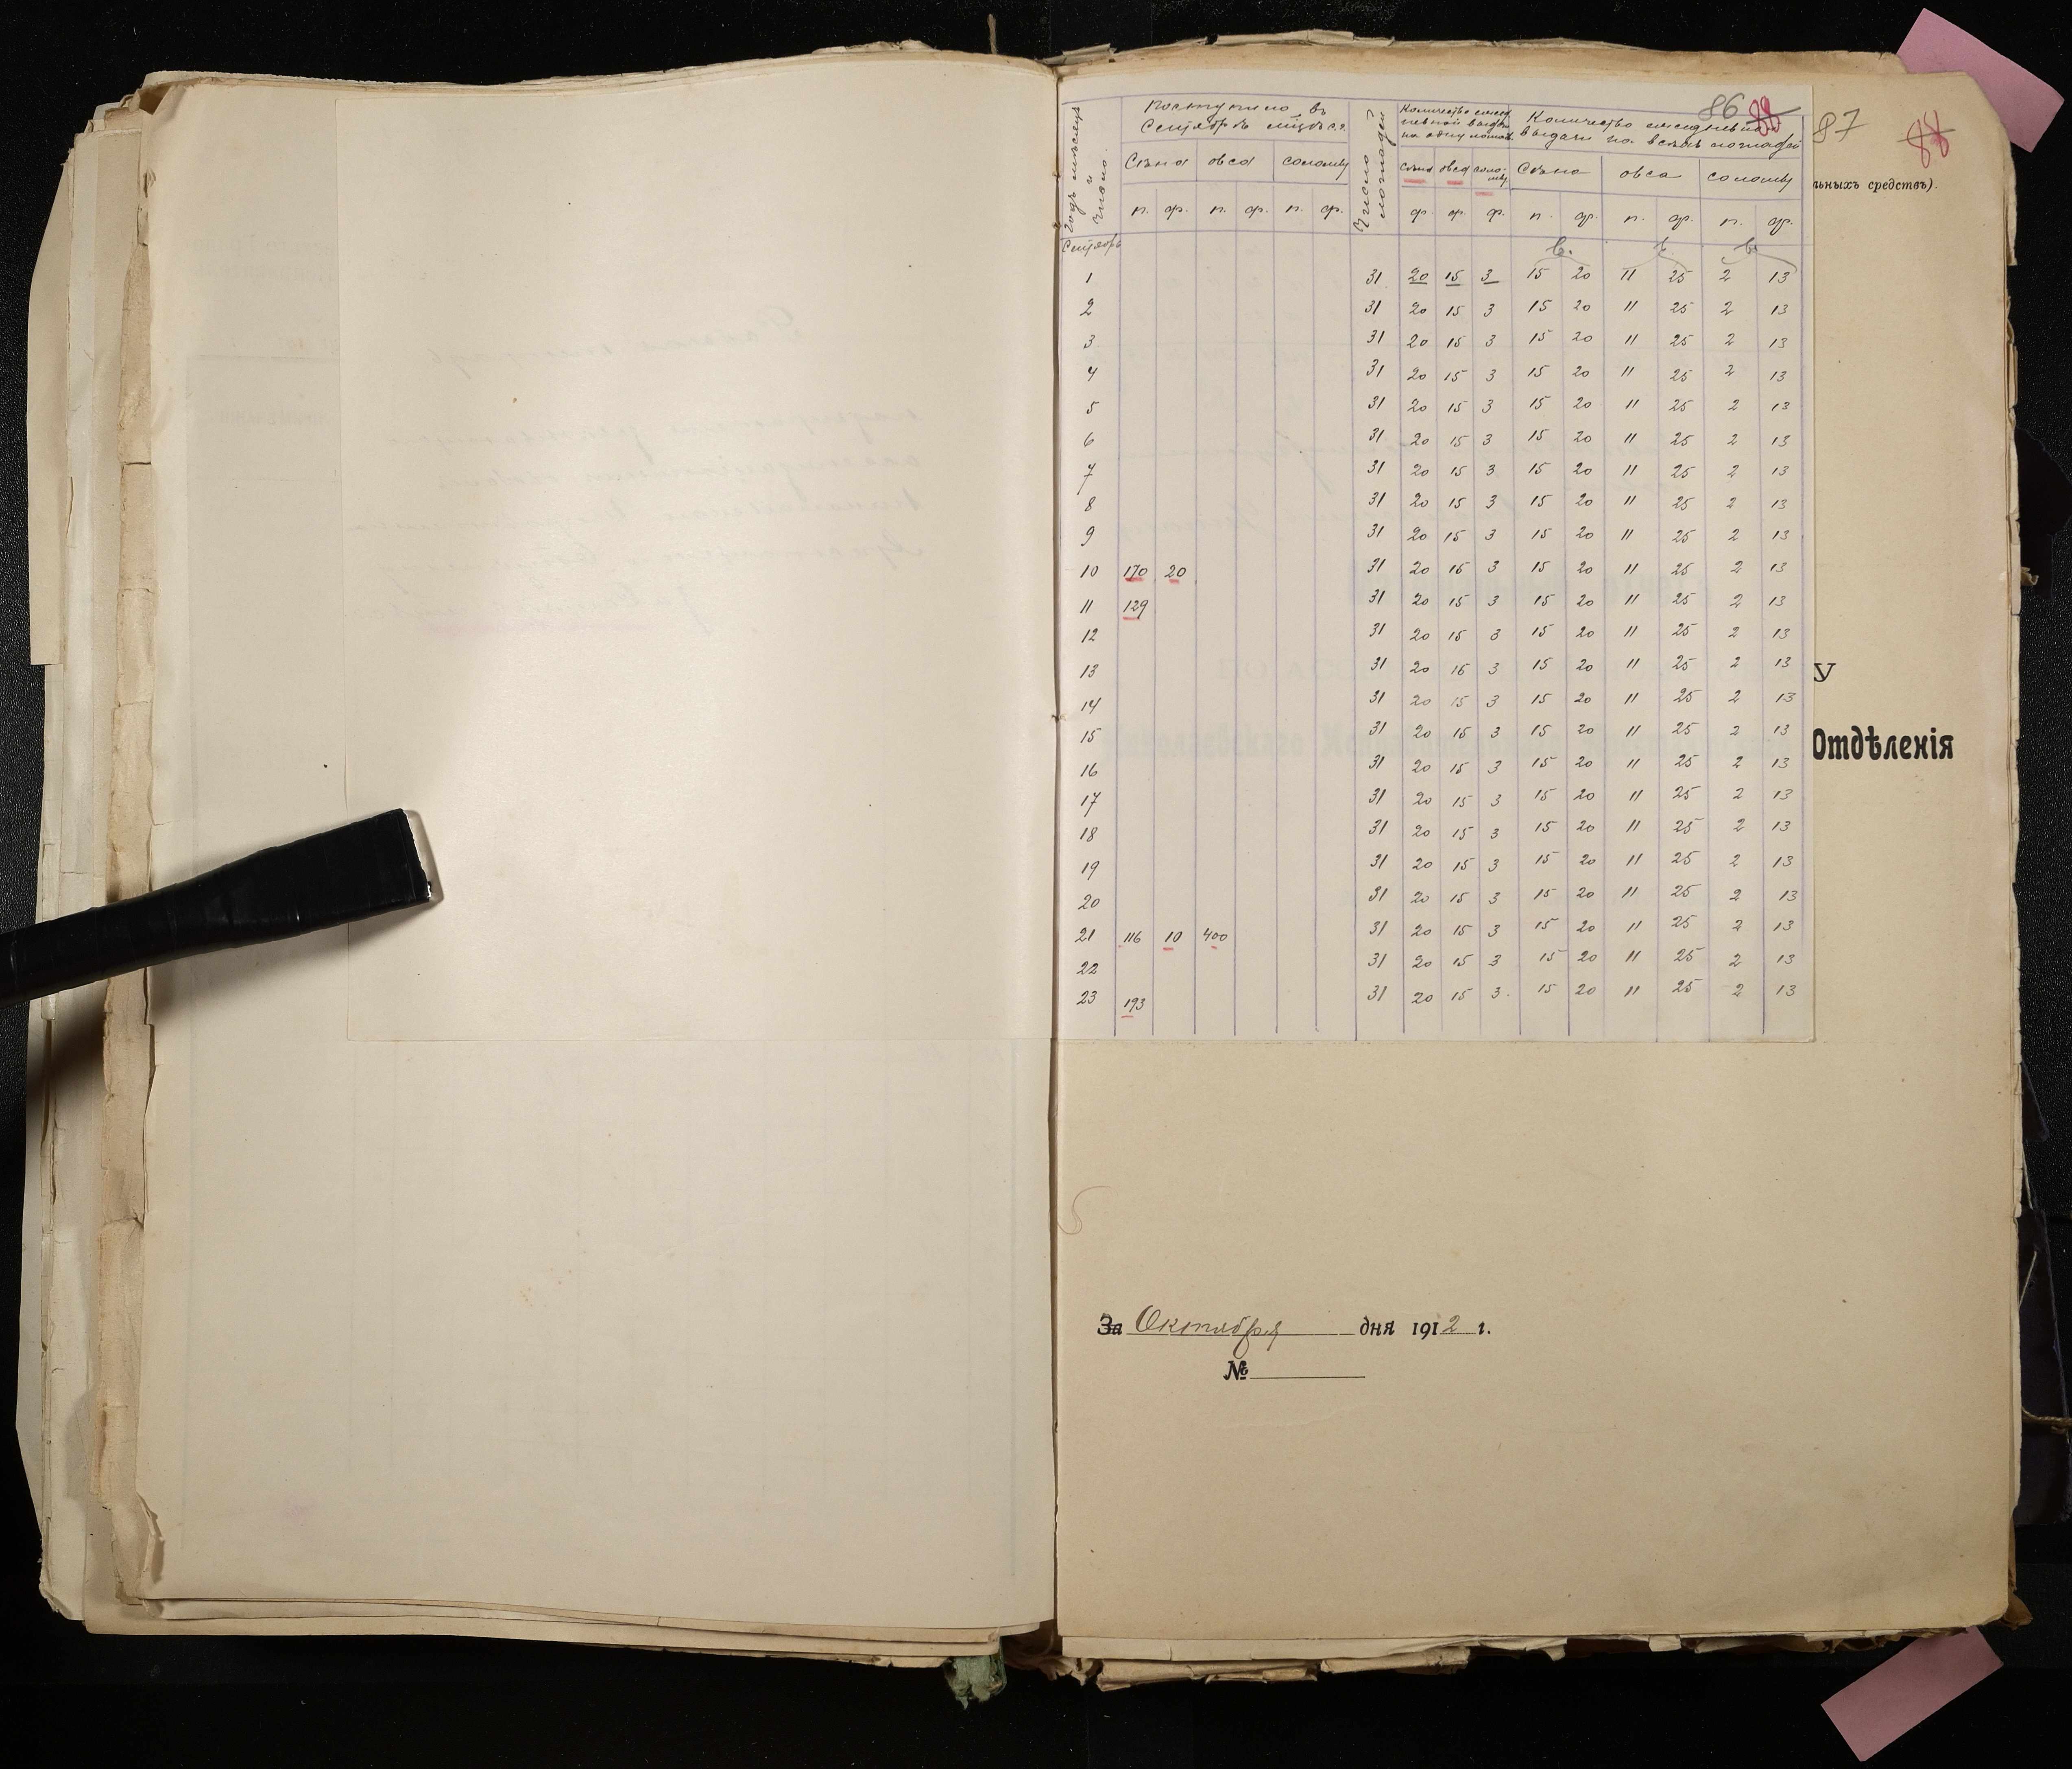 86 88
87 88
льныхъ средствъ).
Годъ мѣсяцъ и число.
Поступило въ Сентябрѣ мцѣ с.г.
Число лошадей
Количество ежедневной выдачи на одну лошадь
Количество ежедневной выдачи на всѣхъ лошадей
Сѣна овса соломы сѣна овса соломы Сѣна овса соломы
п. ф. п. ф. п. ф. ф. ф. ф. п. ф. п. ф. п. ф.
Сентябрь
1 31 20 15 3 15 20 11 25 2 13
2 31 20 15 3 15 20 11 25 2 13
3 31 20 15 3 15 20 11 25 2 13
4 31 20 15 3 15 20 11 25 2 13
5 31 20 15 3 15 20 11 25 2 13
6 31 20 15 3 15 20 11 25 2 13
7 31 20 15 3 15 20 11 25 2 13
8 31 20 15 3 15 20 11 25 2 13
9 31 20 15 3 15 20 11 25 2 13
10 170 20 31 20 15 3 15 20 11 25 2 13
11 129 31 20 15 3 15 20 11 25 2 13
12 31 20 15 3 15 20 11 25 2 13
13 31 20 15 3 15 20 11 25 2 13
14 31 20 15 3 15 20 11 25 2 13
15 31 20 15 3 15 20 11 25 2 13
16 31 20 15 3 15 20 11 25 2 13
17 31 20 15 3 15 20 11 25 2 13
18 31 20 15 3 15 20 11 25 2 13
19 31 20 15 3 15 20 11 25 2 13
20 31 20 15 3 15 20 11 25 2 13
21 116 10 400 31 20 15 3 15 20 11 25 2 13
22 31 20 15 3 15 20 11 25 2 13
23 193 31 20 15 3 15 20 11 25 2 13
У
Отдѣленія
За Октября дня 1912 г.
№